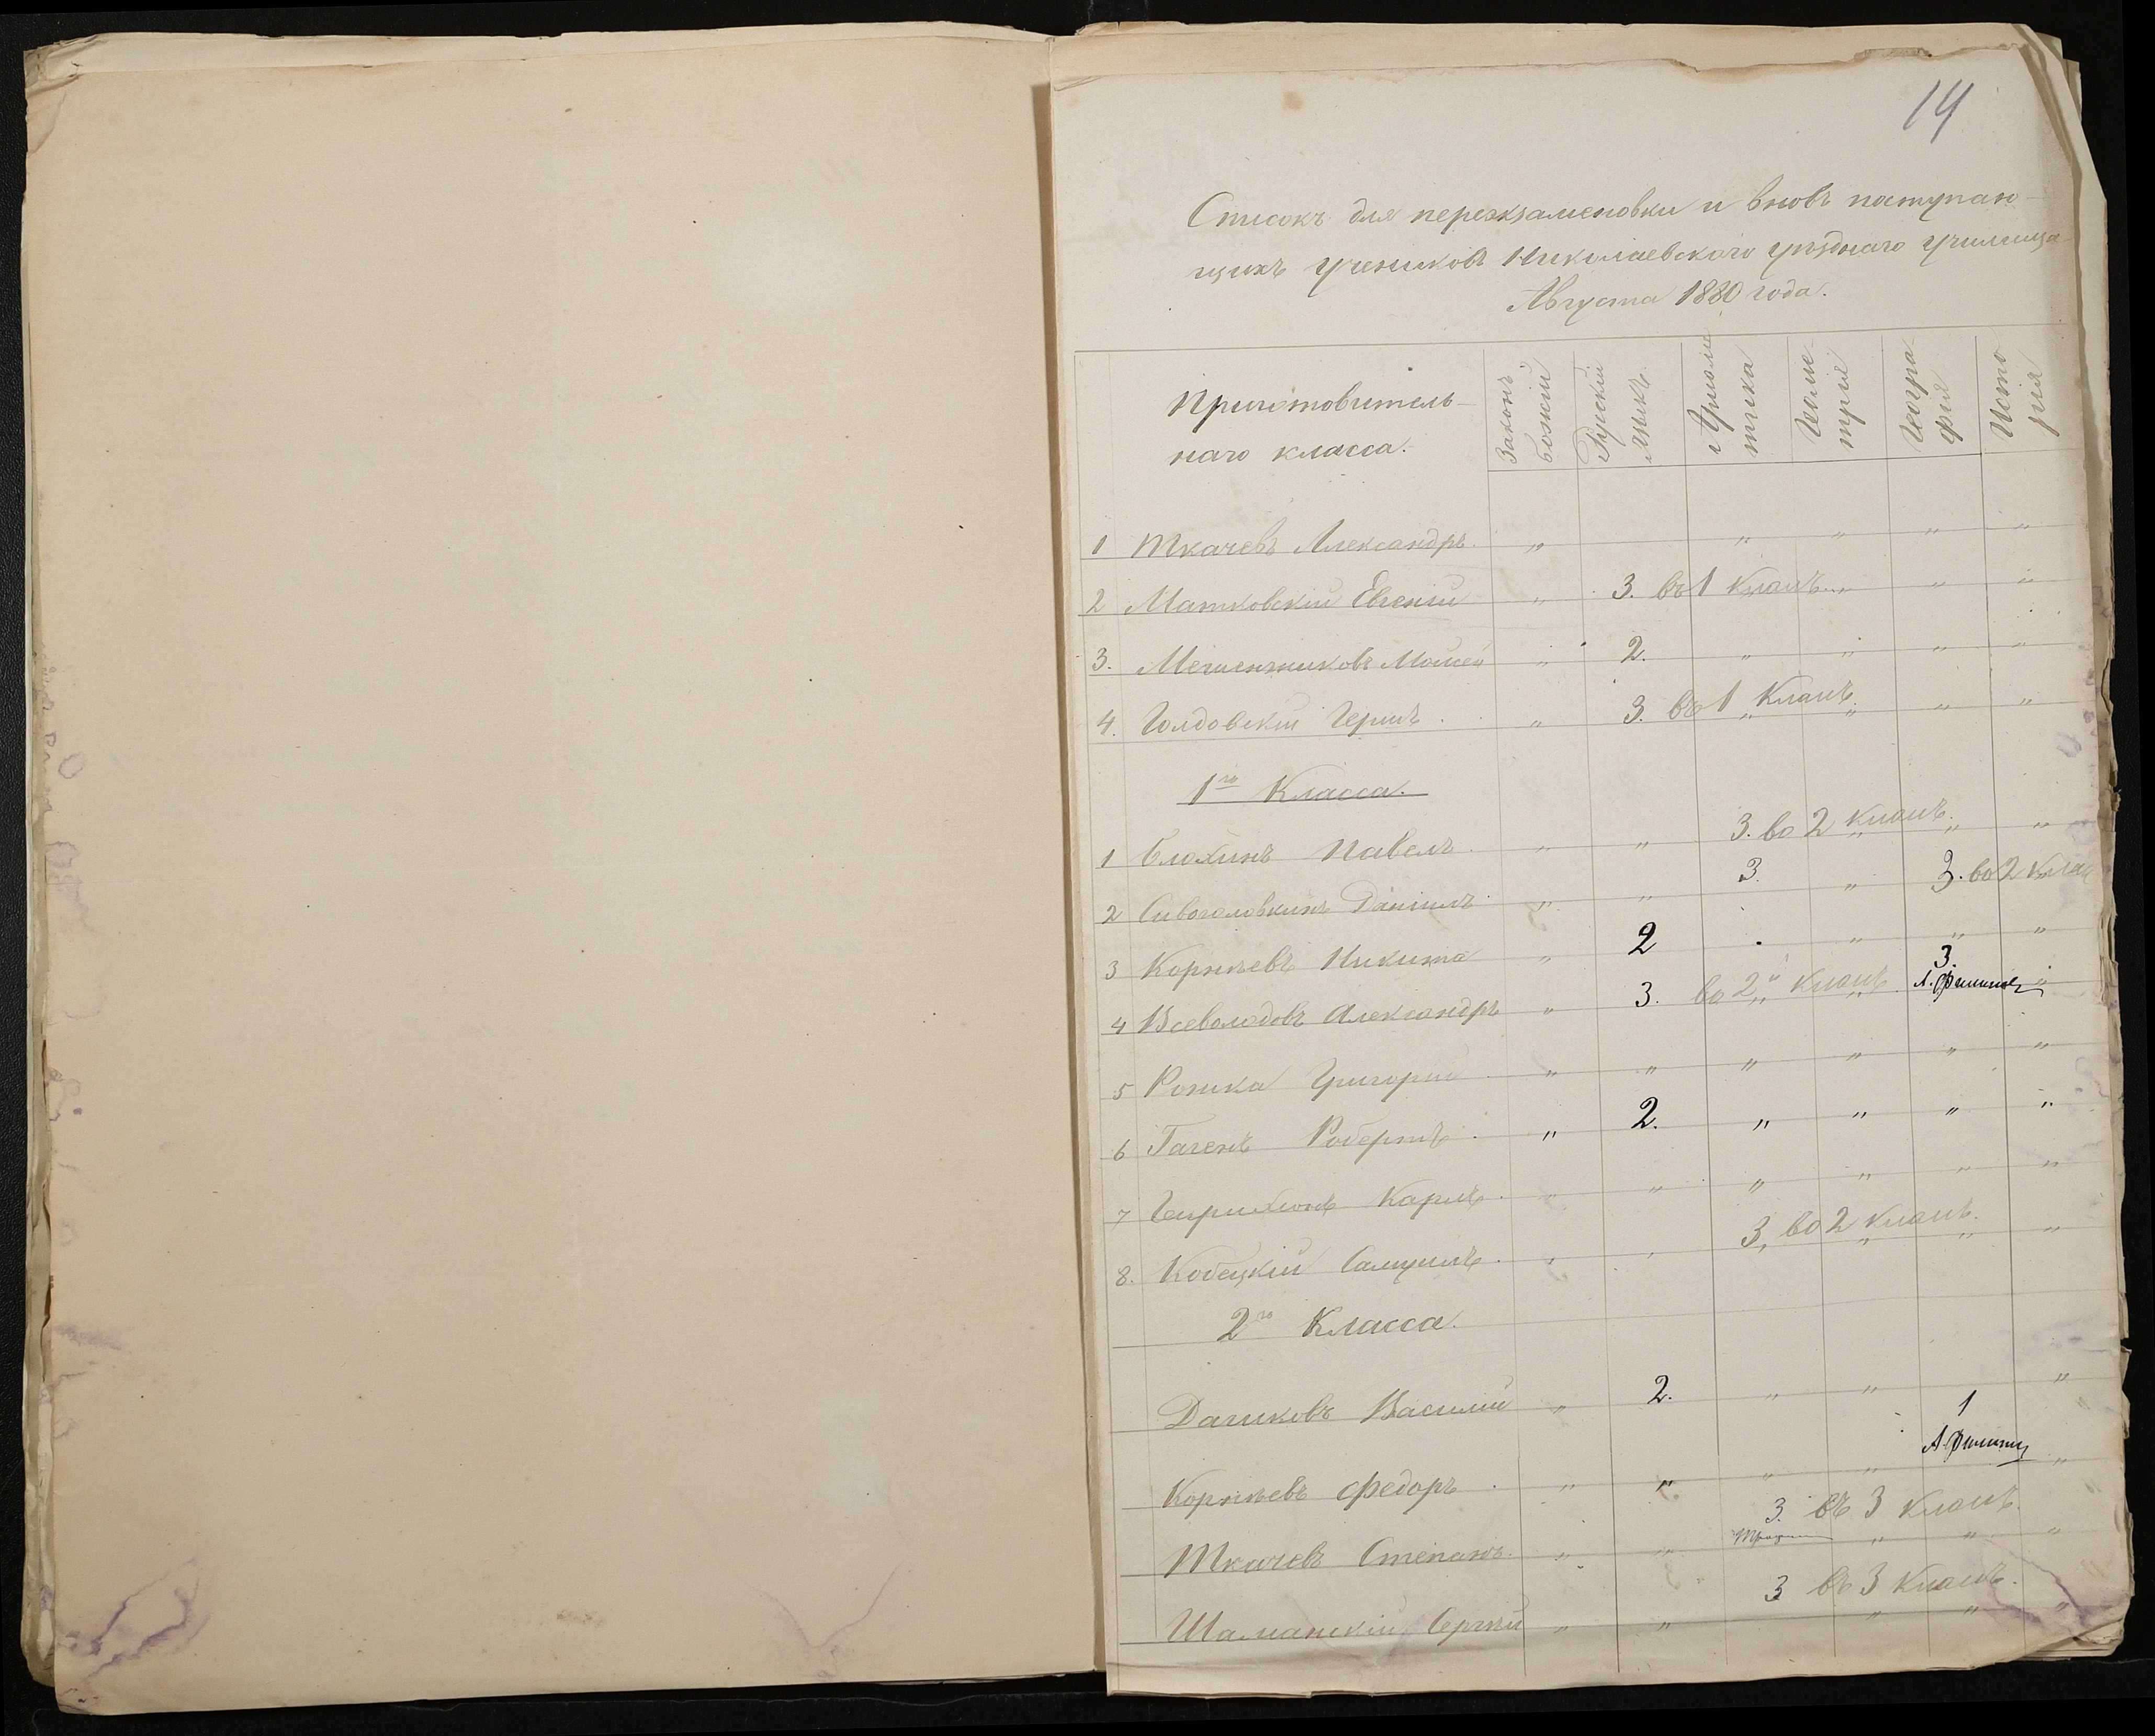 14
Списокъ для переэкзаменовки и вновь поступаю-
щихъ учениковъ Николаевскаго уѣзднаго училища
Августа 1880 года.
Приготовитель-
наго класса.
Законъ
божій
Русскій
Языкъ.
Ариѳме
тика
Геоме
трія
Геогра
фія
Исто
рія
1 Ткачевъ Александръ. " " " " "
2 Матковскій Евгеній " 3. въ 1 классъ. " " "
3. Моисей " 2. " " " "
4. Голдовскій Герша. " 3. въ 1 классъ. " " "
1го Класса.
1 Блохинъ Павелъ. " " 3. во 2 классъ. " "
2 Сивоголовкинъ Даніилъ. " " 3. " 3. во 2 кла
3 Корнѣевъ Никита " 2 . " " "
4 Всеволодовъ Александръ " 3. во 2й классъ. 3. "
А. Филипов
5 Григорій " " " " " "
6 Гагенъ Робертъ. " 2. " " " "
7 Карлъ. " " " " " "
8. Кобецкій Самуилъ. " " 3, во 2 классъ. " "
2го Класса.
Василій " 2. " " "
1
А. Филипов
Корнѣевъ Федоръ. " " " " "
Ткачевъ Степанъ. " " 3. въ 3 классъ. "
Шаманскій Сергѣй " " 3 въ 3 классъ. "